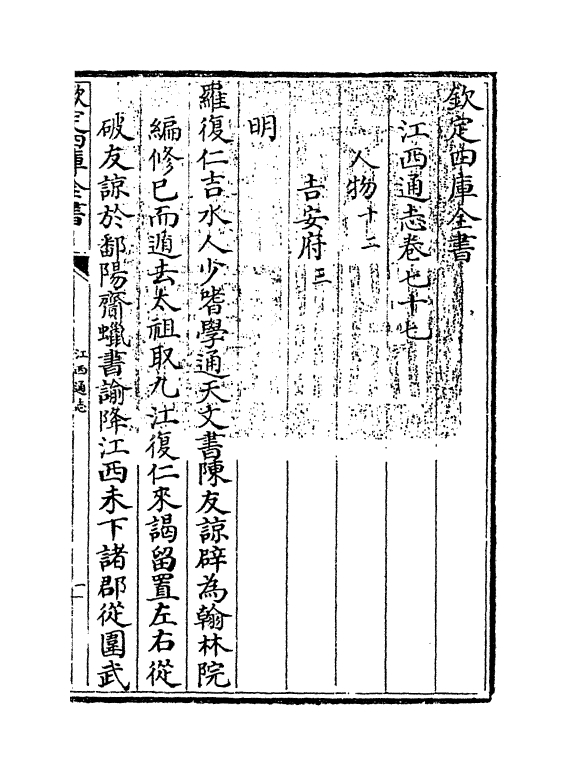 欽定四庫全書
江西通志卷七十七
人物十二
吉安府三
明
羅復仁吉水人少嗜學通天文書陳友諒辟為翰林院
編修已而遁去太祖取九江復仁來謁留置左右從
破友諒於鄱陽齎蠟書諭降江西未下諸郡從圍武
欽定四庫全書
江西通志
一